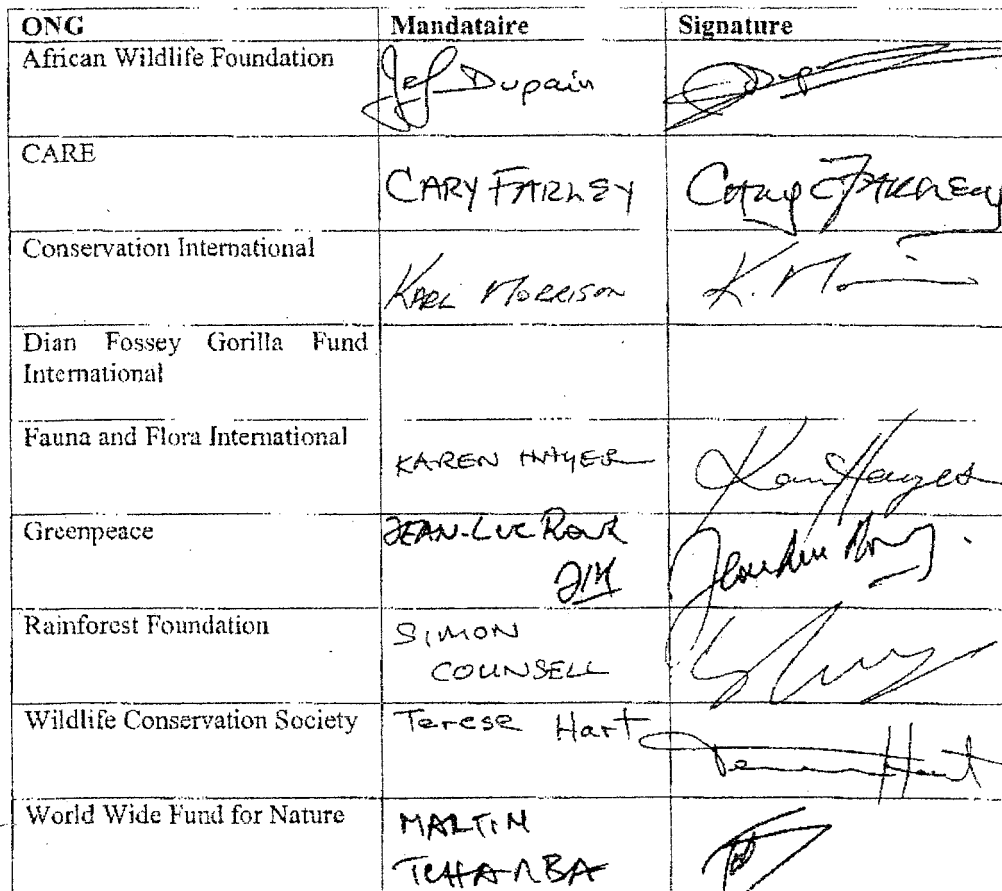 ONG Mandataire Signature
African Wildlife Foundation Jef Dupain
CARE CARY FARLEY Cary FARLEY
Conservation International KARL MORRISON K. M
Dian Fossey Gorilla Fund
International
Fauna and Flora International KAREN HAYES Karen Hayes
Greenpeace JEAN-LUC ROUX
Rainforest Foundation SIMON
COUNSELL
Wildlife Conservation Society Terese Hart Hart
World Wide Fund for Nature MARTIN
TCHAMBA